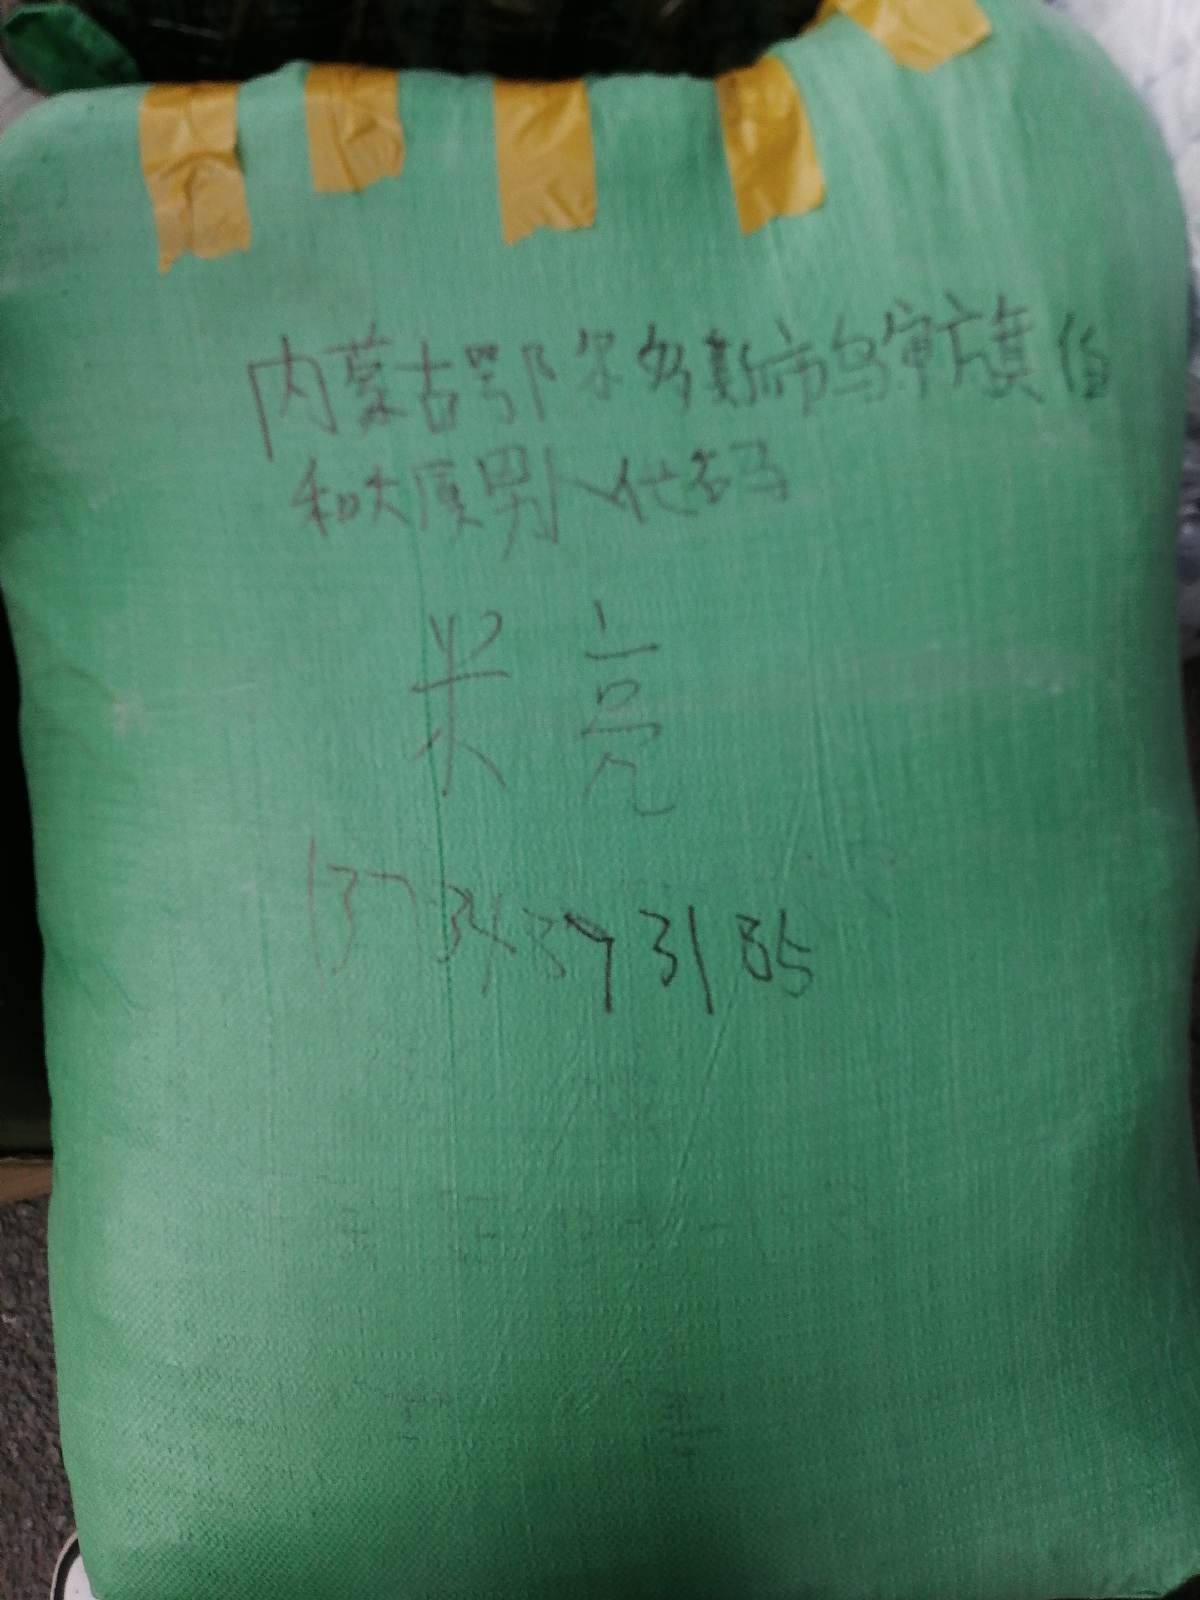 内蒙古鄂尔多斯市乌审旗伯
和大厦男人代码
米亮
13734873185